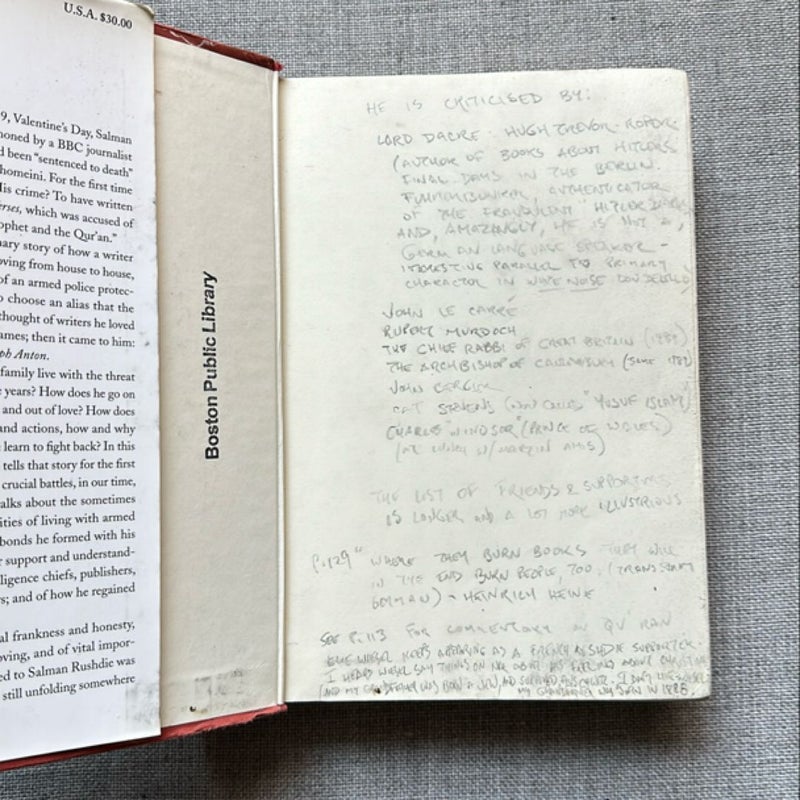 U.S.A. $30.00
9, Valentine's Day, Salman
honed by a BBC journalist
d been "sentenced to death"
homeini. For the first time
His crime? To have written
erses, which was accused of
ophet and the Qur'an."
nary story of how a writer
oving from house to house,
of an armed police protec-
o choose an alias that the
thought of writers he loved
ames; then it came to him:
ph Anton.
family live with the threat
years? How does he go on
and out of love? How does
and actions, how and why
learn to fight back? In this
tells that story for the first
crucial battles, in our time,
alks about the sometimes
ities of living with armed
bonds he formed with his
support and understand-
lligence chiefs, publishers,
s; and of how he regained
al frankness and honesty,
oving, and of vital impor-
ed to Salman Rushdie was
still unfolding somewhere
Boston Public Library
HE IS CRITICISED BY:
LORD DACRE HUGH TREVOR-ROPER
(AUTHOR OF BOOKS ABOUT HITLERS
FINAL DAYS IN THE BERLIN
AUTHENTICATOR
OF THE FRAUDULENT "HITLER
AND, AMAZINGLY, HE IS NOT A
GERMAN LANGUAGE SPEAKER -
INTERESTING PARALLEL TO PRIMARY
CHARACTER IN NOISE DON DELILLO
JOHN LE CARRÉ
RUPERT MURDOCH
THE CHIEF RABBI OF GREAT BRITAIN (1989)
THE ARCHBISHOP OF
JOHN
CAT STEVENS (NOW CALLED "YUSUF ISLAM)
CHARLES "WINDSOR" (PRINCE OF WALES)
(AT W/ MARTIN AMIS)
THE LIST OF FRIENDS & SUPPORTERS
IS LONGER AND A LOT MORE ILLUSTRIOUS
P.129 "WHERE THEY BURN BOOKS THEY WILL
IN THE END BURN PEOPLE, TOO. (TRANS FROM
GERMAN) - HEINRICH HEINE
SEE P. 113 FOR COMMENTARY ON QU'RAN
KEEPS APPEARING AS A SUPPORTER.
I HEARD WIESEL SAY THINGS ON ABOUT HIS FEELINGS ABOUT
(AND MY GRANDFATHER WAS BORN A JEW, AND I DON'T
MY GRANDFATHER WAS BORN IN 1888.